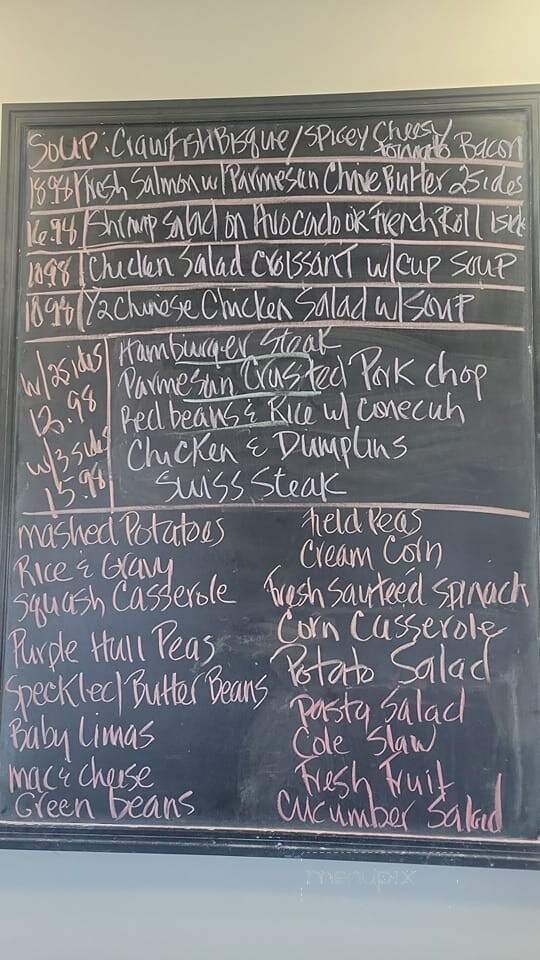 Soup: Crawfish Bisque / Spicey Cheesy Tomato Bacon
18.98 Fresh Salmon w/ Parmesan Chive Butter 2 sides
16.98 Shrimp Salad on Avocado or French Roll 1 side
10.98 Chicken Salad Croissant w/ cup soup
10.98 1/2 Chinese Chicken Salad w/ soup
w/ 2 sides
12.98
w/ 3 sides
15.98
Hamburger Steak
Parmesan Crusted Pork chop
Red beans & Rice w/ conecuh
Chicken & Dumplins
Swiss Steak
mashed Potatoes
Rice & Gravy
Squash Casserole
Purple Hull Peas
Speckled Butter Beans
Baby Limas
mac & cheese
Green beans
field Peas
Cream Corn
Fresh Sauteed Spinach
Corn Casserole
Potato Salad
Pasta Salad
Cole Slaw
Fresh Fruit
Cucumber Salad
menupix